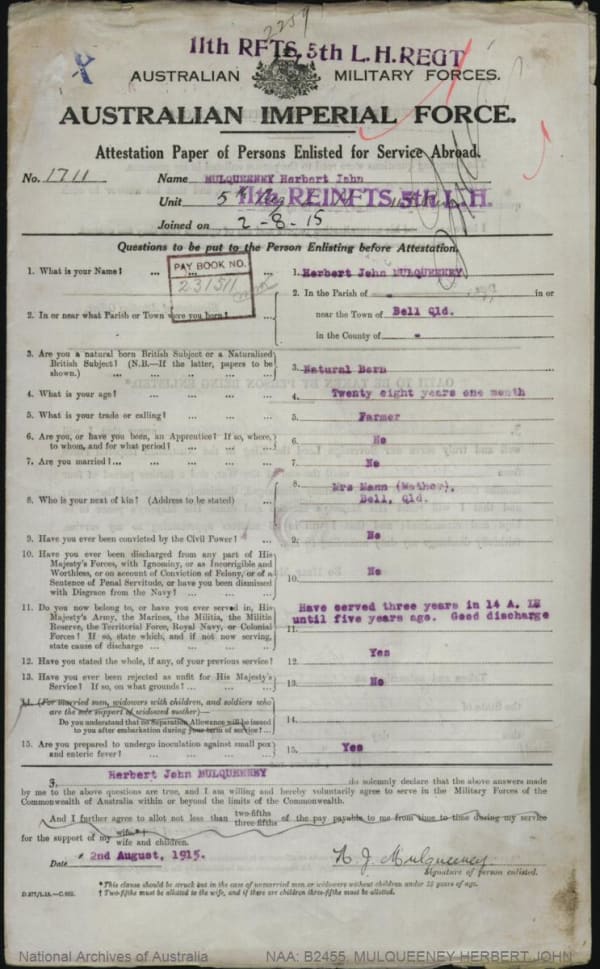 2259
11th RFTS. 5th L.H. REGT
AUSTRALIAN MILITARY FORCES.
AUSTRALIAN IMPERIAL FORCE.
Attestation Paper of Persons Enlisted for Service Abroad.
No. 1711 Name MULQUEENEY Herbert John
Unit 5th 11th REINFTS, 5th L. H.
Joined on 2-8-15
Questions to be put to the Person Enlisting before Attestation.
1. What is your Name? ... ... ... 1. Herbert John MULQUEENEY
PAY BOOK NO.
231511
2. In or near what Parish or Town were you born? ... 2. In the Parish of - in or
near the Town of Bell Qld.
in the County of -
3. Are you a natural born British Subject or a Naturalised
British Subject? (N.B.—If the latter, papers to be
shown.) ... ... ... ... 3. Natural Born
4. What is your age? ... ... ... 4. Twenty eight years one month
5. What is your trade or calling? ... ... ... 5. Farmer
6. Are you, or have you been, an Apprentice? If so, where,
to whom, and for what period? ... ... ... 6. No
7. Are you married?... ... ... ... 7. No
8. Who is your next of kin? (Address to be stated) ... 8. Mrs Mann (Mother),
Bell, Qld.
9. Have you ever been convicted by the Civil Power? ... 9. No
10. Have you ever been discharged from any part of His
Majesty's Forces, with Ignominy, or as Incorrigible and
Worthless, or on account of Conviction of Felony, or of a
Sentence of Penal Servitude, or have you been dismissed
with Disgrace from the Navy? ... ... ... 10. No
11. Do you now belong to, or have you ever served in, His
Majesty's Army, the Marines, the Militia, the Militia
Reserve, the Territorial Force, Royal Navy, or Colonial
Forces? If so, state which, and if not now serving,
state cause of discharge ... ... ... ... 11. Have served three years in 14 A. IR
until five years ago. Good discharge
12. Have you stated the whole, if any, of your previous service? 12. Yes
13. Have you ever been rejected as unfit for His Majesty's
Service? If so, on what grounds? ... ... ... 13. No
14. (For married men, widowers with children, and soldiers who
are the sole support of widowed mother)—
Do you understand that no Separation Allowance will be issued
to you after embarkation during your term of service?... 14.
15. Are you prepared to undergo inoculation against small pox
and enteric fever? ... ... ... ... 15. Yes
I, Herbert John MULQUEENEY do solemnly declare that the above answers made
by me to the above questions are true, and I am willing and hereby voluntarily agree to serve in the Military Forces of the
Commonwealth of Australia within or beyond the limits of the Commonwealth.
*And I further agree to allot not less than two-fifths three-fifths of the pay payable to me from time to time during my service
for the support of my wife† wife and children.
Date 2nd August, 1915. H. J. Mulqueeney
Signature of person enlisted.
* This clause should be struck out in the case of unmarried men or widowers without children under 18 years of age.
† Two-fifths must be allotted to the wife, and if there are children three-fifths must be allotted.
National Archives of Australia NAA: B2455, MULQUEENEY HERBERT JOHN